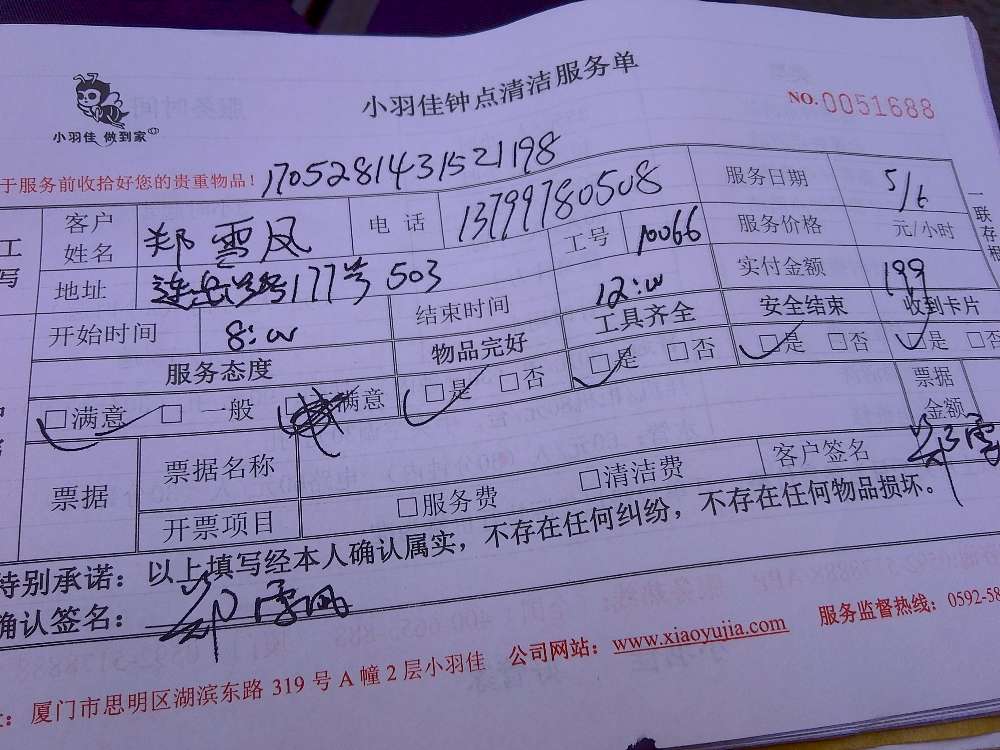 小羽佳 做到家
小羽佳钟点清洁服务单
NO.0051688
于服务前收拾好您的贵重物品！
1705281431521198
客户姓名 郑雪凤 电话 13799780508 服务日期 5/6
工号 10066 服务价格 元/小时
地址 连岳路177号503 实付金额 199
开始时间 8:00 结束时间 12:00
服务态度 物品完好 工具齐全 安全结束 收到卡片
□满意 □一般 □不满意 □是 □否 □是 □否 □是 □否 □是 □否
票据 票据名称 票据金额
开票项目 □服务费 □清洁费 客户签名 郑雪
一联存根
特别承诺：以上填写经本人确认属实，不存在任何纠纷，不存在任何物品损坏。
确认签名：郑雪凤
厦门市思明区湖滨东路319号A幢2层小羽佳 公司网站：www.xiaoyujia.com 服务监督热线：0592-58